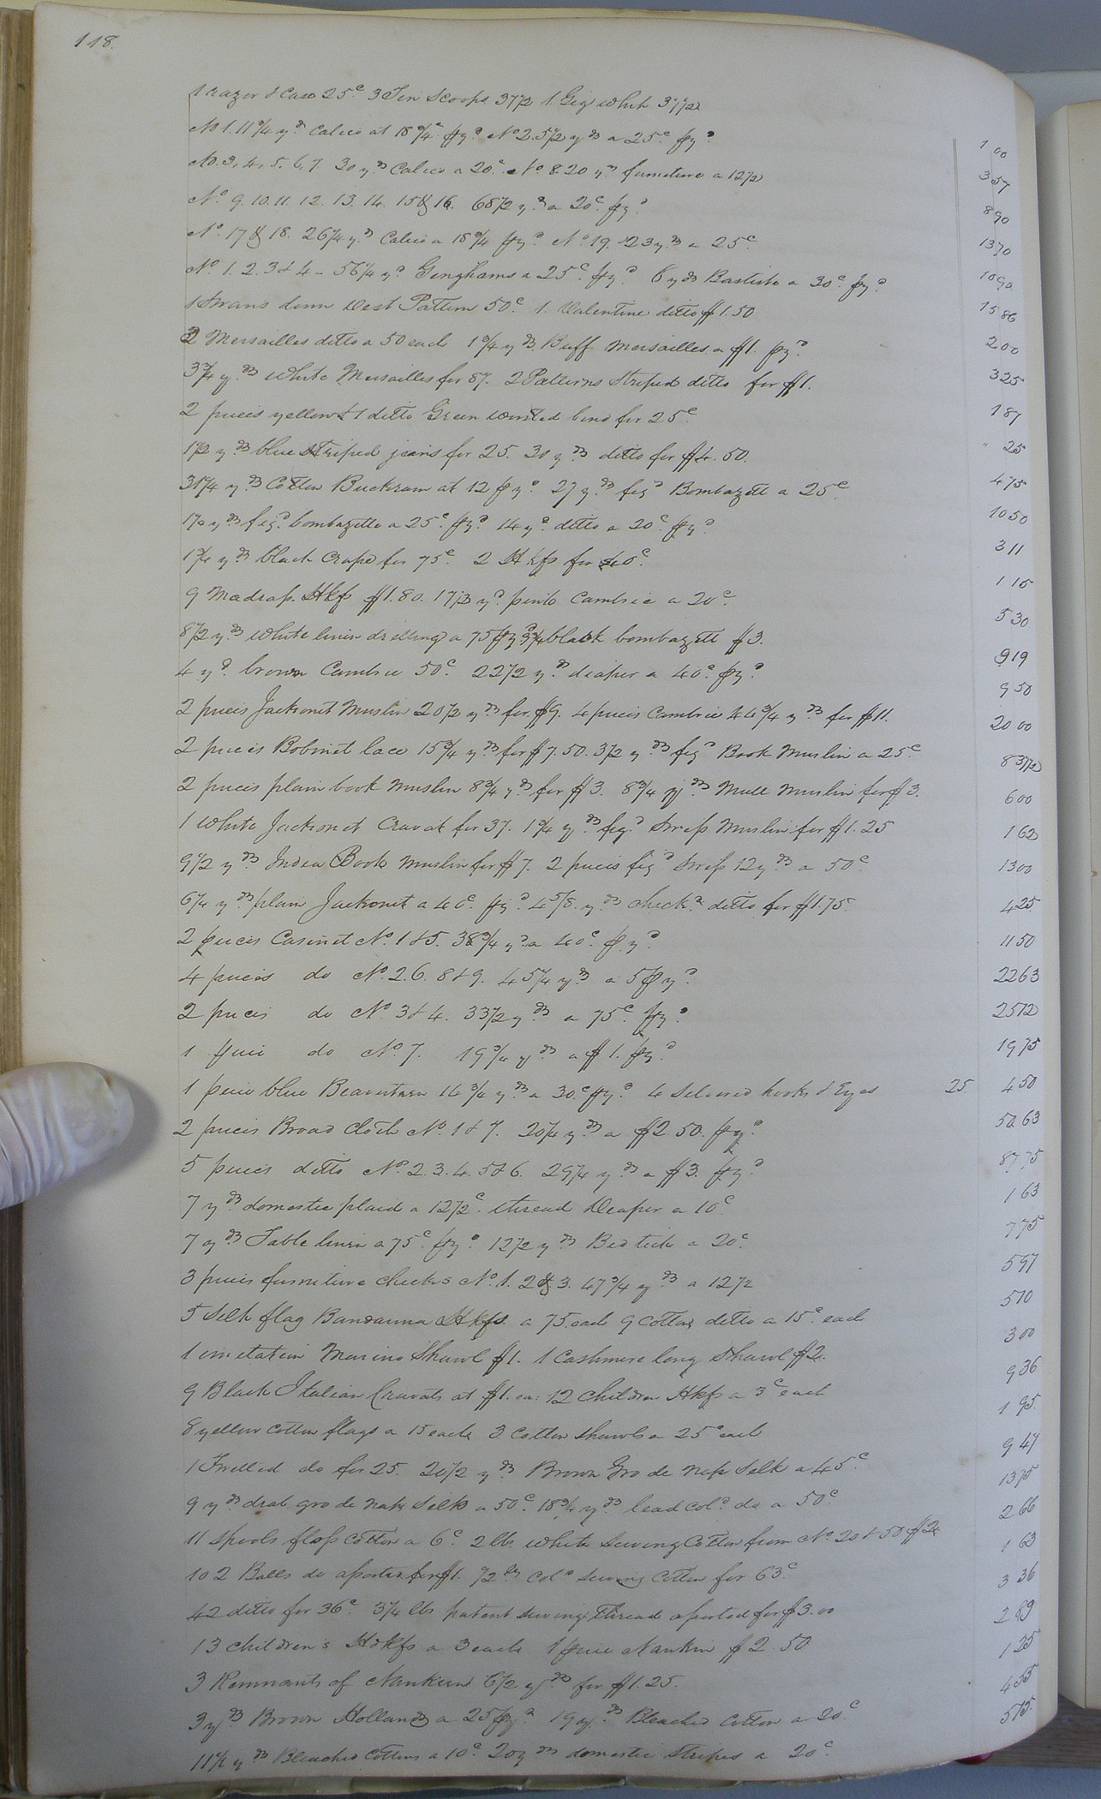 118.
1 razor & Case 25c 3 Tin Scoops 37½ 1 Gig whip 37½ 1 00
No 1. 11¾ yds Calico at 18¾c pyd No 2. 5½ yds a 25c pyd 3 57
No. 3. 4. 5. 6. 7. 30 yds Calico a 20c No 8. 20 yds furniture a 12½ 8 90
No. 9. 10. 11. 12. 13. 14. 15 & 16. 68½ yds a 20c pyd 13 70
No. 17 & 18. 26¼ yds Calico a 18¾ pyd No. 19. 23 yds a 25c 10 90
No 1. 2. 3 & 4 - 56¼ yd Ginghams a 25c pyd 6 yds Bastiste a 30c pyd 15 86
1 Swans down Vest Pattern 50c 1 Valentine ditto $1.50 2 00
2 Mersailles ditto a 50 each 1¾ yds Buff Mersailles a $1. pyd 3 25
3¾ yds white Mersailles for 87. 2 Patterns Striped ditto for $1. 1 87
2 pieces yellow & 1 ditto Green worsted bind for 25c " 25
1½ yds blue Striped jeans for 25. 30 yds ditto for $4.50. 4 75
31¼ yds Cotton Buckram at 12 pyd 27 yds figd Bombazett a 25c 10 50
1¼ yds figd bombazette a 25c pyd 14 yd ditto a 20c pyd 3 11
1¾ yds black Crape for 75c 2 Hkfs for 40c 1 15
9 Madras. Hkfs $1.80. 17½ yd pink Cambric a 20c 5 30
8½ yds white linen drilling a 75 pyd 3¼ black bombazett $3. 9 19
4 yd brown Cambric 50c 22½ yds deaper a 40c pyd 9 50
2 pieces Jackonet Muslin 20½ yds for $9. 4 pieces Cambric 44¾ yds for $11. 20 00
2 pieces Bobinet lace 15¾ yds for $7.50. 3½ yds figd Book Muslin a 25c 8 37½
2 pieces plain book Muslin 8¾ yds for $3. 8¾ yds Mull Muslin for $3. 6 00
1 White Jackonet Cravat for 37. 1¾ yds figd Swiss Muslin for $1.25 1 62
9½ yds India Book Muslin for $7. 2 pieces figd Swiss 12 yds a 50c 13 00
6¼ yds plain Jackonet a 40c pyd 4⅝ yds checkd ditto for $1.75. 4 25
2 pieces Casinet No. 1 & 5. 38¾ yd a 40c pyd 11 50
4 pieces do No. 2. 6. 8 & 9. 45¼ yds a 5 pyd 22 63
2 pieces do No 3 & 4. 33½ yds a 75c pyd 25 12
1 piece do No. 7. 19¾ yds a $1. pyd 19 75
1 piece blue Beaverteen 14¾ yds a 30c pyd 4 Silvered hooks & Eyes 25 4 50
2 pieces Broad Cloth No. 1 & 7. 20¼ yds a $2.50. pyd 50 63
5 pieces ditto No. 2. 3. 4. 5 & 6. 29¼ yds a $3. pyd 87 75
7 yds domestic plaid a 12½c thread Deaper a 10c 1 63
7 yds Table linen a 75c pyd 12½ yds Bed tick a 20c 7 75
3 pieces furniture checks No. 1. 2 & 3. 47¾ yds a 12½ 5 97
5 Silk flag Bandanna Hkfs. a 75. each 9 Cotton ditto a 15c each 5 10
1 imitation Marino Shawl $1. 1 Cashmere long Shawl $2. 3 00
9 Black Italian Cravats at $1. ea. 12 Children Hkfs a 3c each 9 36
8 yellow Cotton flags a 15 each 3 Cotton Shawls a 25c each 1 95
1 Twilled do for 25. 20½ yds Brown Gro de naps Silk a 45c 9 47
9 yds drab gro de naps Silks a 50c 18¾ yds lead cold do a 50c 13 75
11 Spools floss Cotton a 6c 2 lbs white Sewing Cotton from No. 20 & 50 $2. 2 66
102 Balls do assorted for $1. ½ lb cold Sewing Cotton for 63c 1 63
42 ditto for 36c 3¼ lbs patent Sewing Thread assorted for $3.00 3 36
13 Children's Hdkfs a 3 each 1 piece Nankin $2.50 2 89
3 Remnants of Nankeen 6½ yds for $1.25. 1 25
3 yds Brown Hollands a 25 pyd 19 yds Bleached Cotton a 20c 4 55
11½ yds Bleached Cottons a 10c 20 yds domestic Stripes a 20c 5 15